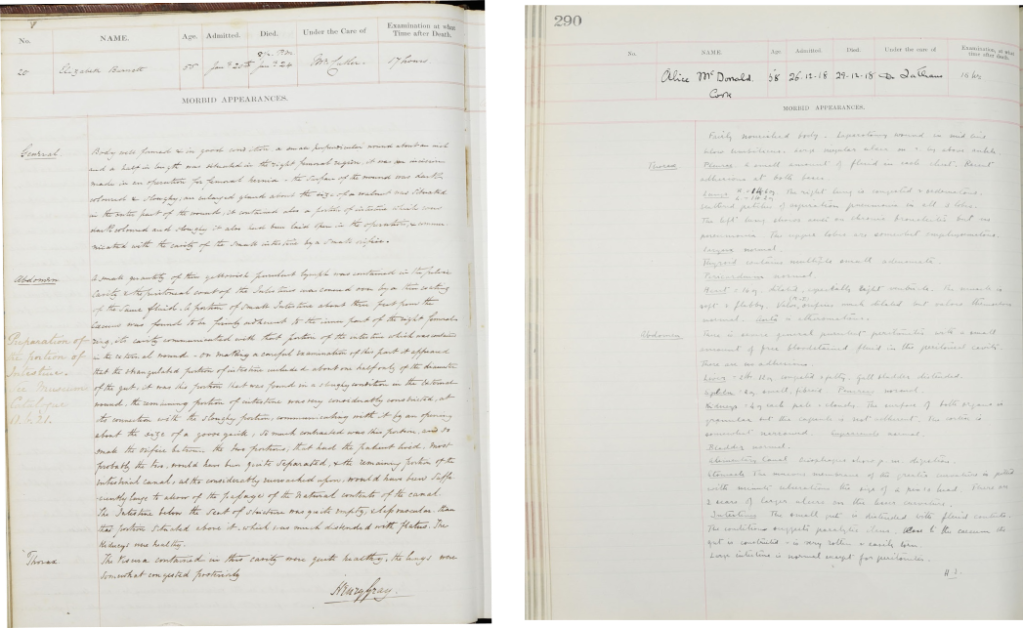 No. NAME. Age. Admitted. Died. Under the Care of Examination at what Time after Death.
20 Elizabeth Barnett 55 Jan 20th Jan 24 Mr Cutler 17 hours
MORBID APPEARANCES.
General
Body well formed & in good condition a small perpendicular wound about an inch
and a half in length was situated in the right femoral region, it was an incision
made in an operation for femoral hernia - the surface of the wound was darkly
coloured & sloughy, an enlarged gland about the size of a walnut was situated
in the outer part of the wound, it contained also a portion of intestine which was
dark coloured and sloughy it also had been laid open in the operation, & commu-
nicated with the cavity of the small intestine by a small orifice.
Abdomen
A small quantity of thin yellowish purulent lymph was contained in the pelvic
cavity & the peritoneal coat of the Intestines was covered over by a thin coating
of the same fluid. A portion of Small Intestine about three feet from the
caecum was found to be firmly adherent to the inner part of the right femoral
ring, its cavity communicated with that portion of the intestine which was contained
in the external wound - on making a careful examination of this part it appeared
that the strangulated portion of intestine included about one half only of the diameter
of the gut, it was this portion that was found in a sloughy condition in the external
wound, the remaining portion of intestine was very considerably constricted, at
its connection with the sloughy portion, communicating with it by an opening
about the size of a goose quill, so much contracted was this portion, and so
small the orifice between the two portions, that had the patient lived, most
probably the two, would have been quite separated, & the remaining portion of the
intestinal canal, altho considerably encroached upon, would have been suffi-
ciently large to allow of the passage of the natural contents of the canal.
The Intestine below the seat of stricture was quite empty, & less vascular than
the portion situated above it, which was much distended with flatus. The
Kidneys was healthy.
Preparation of
the portion of
Intestine.
Museum
Catalogue
Thorax
The viscera contained in this cavity were quite healthy, the lungs were
somewhat congested posteriorly
Henry Gray.
290
No. NAME. Age. Admitted. Died. Under the care of Examination at what time after death.
Alice McDonald. 58 26-12-18 29-12-18 Dr Latham
Cook
MORBID APPEARANCES.
Fairly nourished body. Laparotomy wound in mid line
below umbilicus.
Thorax
Pleurae A small amount of fluid in each chest. Recent
adhesions at both bases.
Lungs The right lung is congested & oedematous.
Scattered patches of suppurative pneumonia in all 3 lobes.
The left lung shows acute on chronic bronchitis but no
pneumonia. The upper lobes are somewhat emphysematous.
Larynx normal.
Thyroid contains multiple small adenomata.
Pericardium normal.
Heart dilated, especially right ventricle. The muscle is
soft & flabby.
normal. Aorta
Abdomen
There is acute general purulent peritonitis with a small
amount of free bloodstained fluid in the peritoneal cavity.
There are no adhesions.
Liver congested & fatty. Gall bladder distended.
Spleen small, fibroid. Pancreas normal.
Kidneys each pale & cloudy. The surface of both organs is
granular but the capsule is not adherent. The cortex is
somewhat narrowed. Suprarenals normal.
Bladder normal.
Alimentary Canal Oesophagus shows p.m. digestion.
Stomach The mucous membrane of the greater curvature is pitted
with minute ulcerations the size of a pin's head. There are
2 scars of larger ulcers on the lesser curvature.
Intestines The small gut is distended with fluid contents.
The condition suggests paralytic ileus. Close to the caecum the
gut is constricted - is very rotten & easily torn.
Large intestine is normal except for peritonitis.